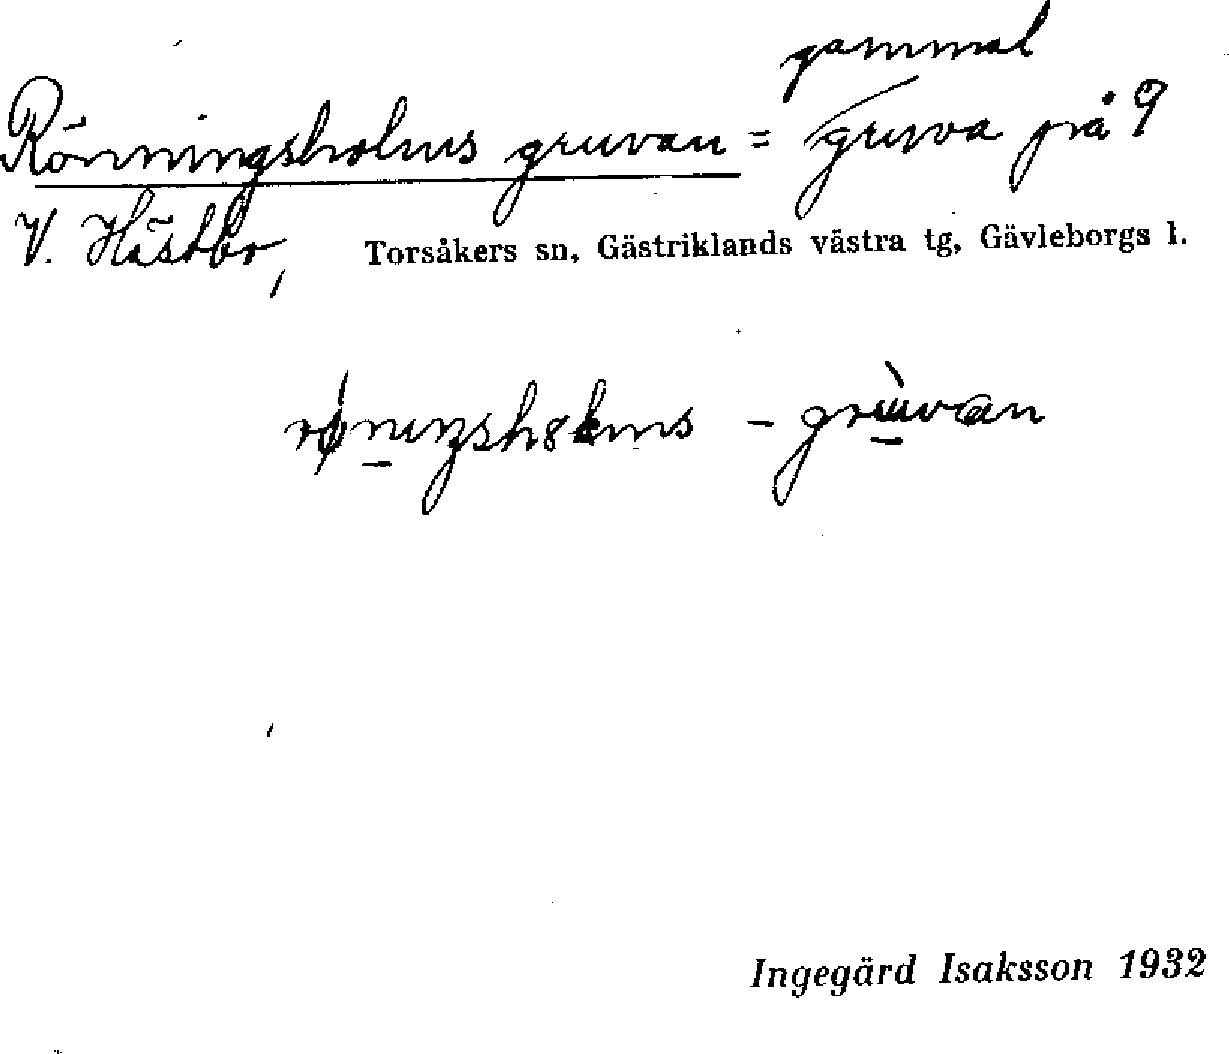 gammal
Rönningsholms gruvan = gruva på 9
V. Hästbo, Torsåkers sn, Gästriklands västra tg, Gävleborgs l.
rǿnıŋshɞlms - grùvan
Ingegärd Isaksson 1932